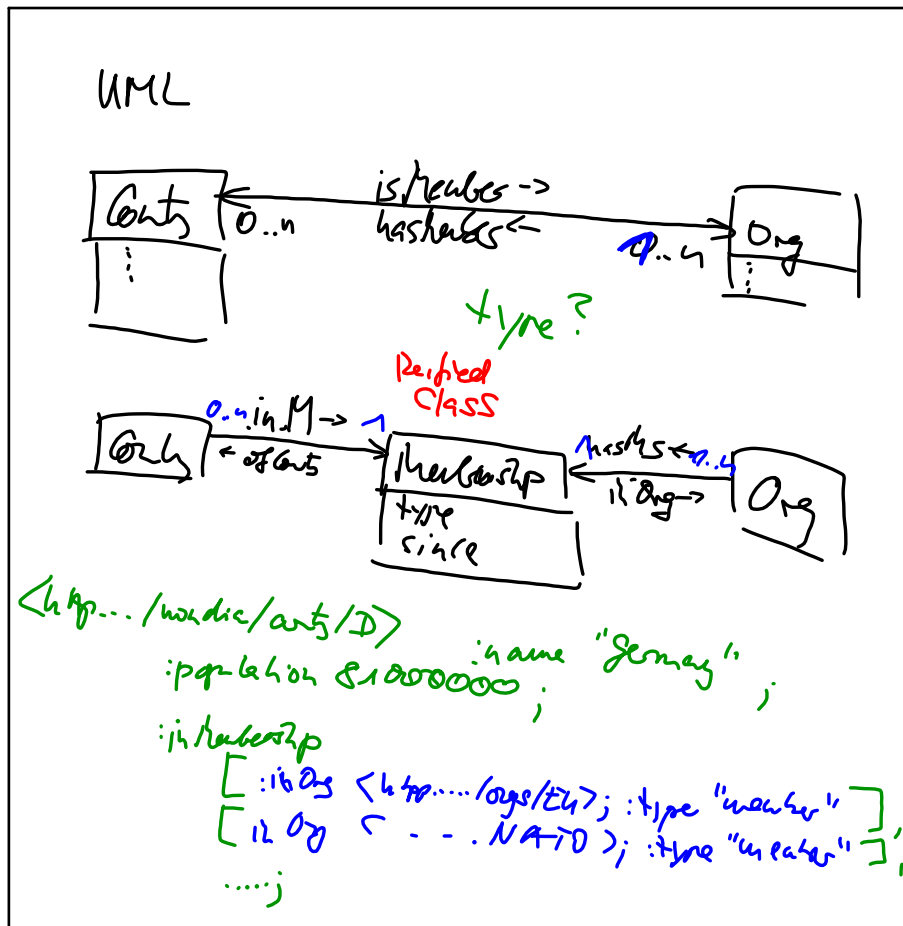 UML
Country
isMember →
hasMember ←
0..n
0..n
Org
type?
Reified
Class
0..n
inM →
1
Country
← ofCountry
Membership
type
since
1
hasMs ←
0..n
inOrg →
Org
<http.../mondial/country/D>
:name "Germany";
:population 81000000;
:inMembership
[ :inOrg <http...../orgs/EU>; :type "member" ],
[ in Org < - - . NATO >; :type "member" ],
.....;